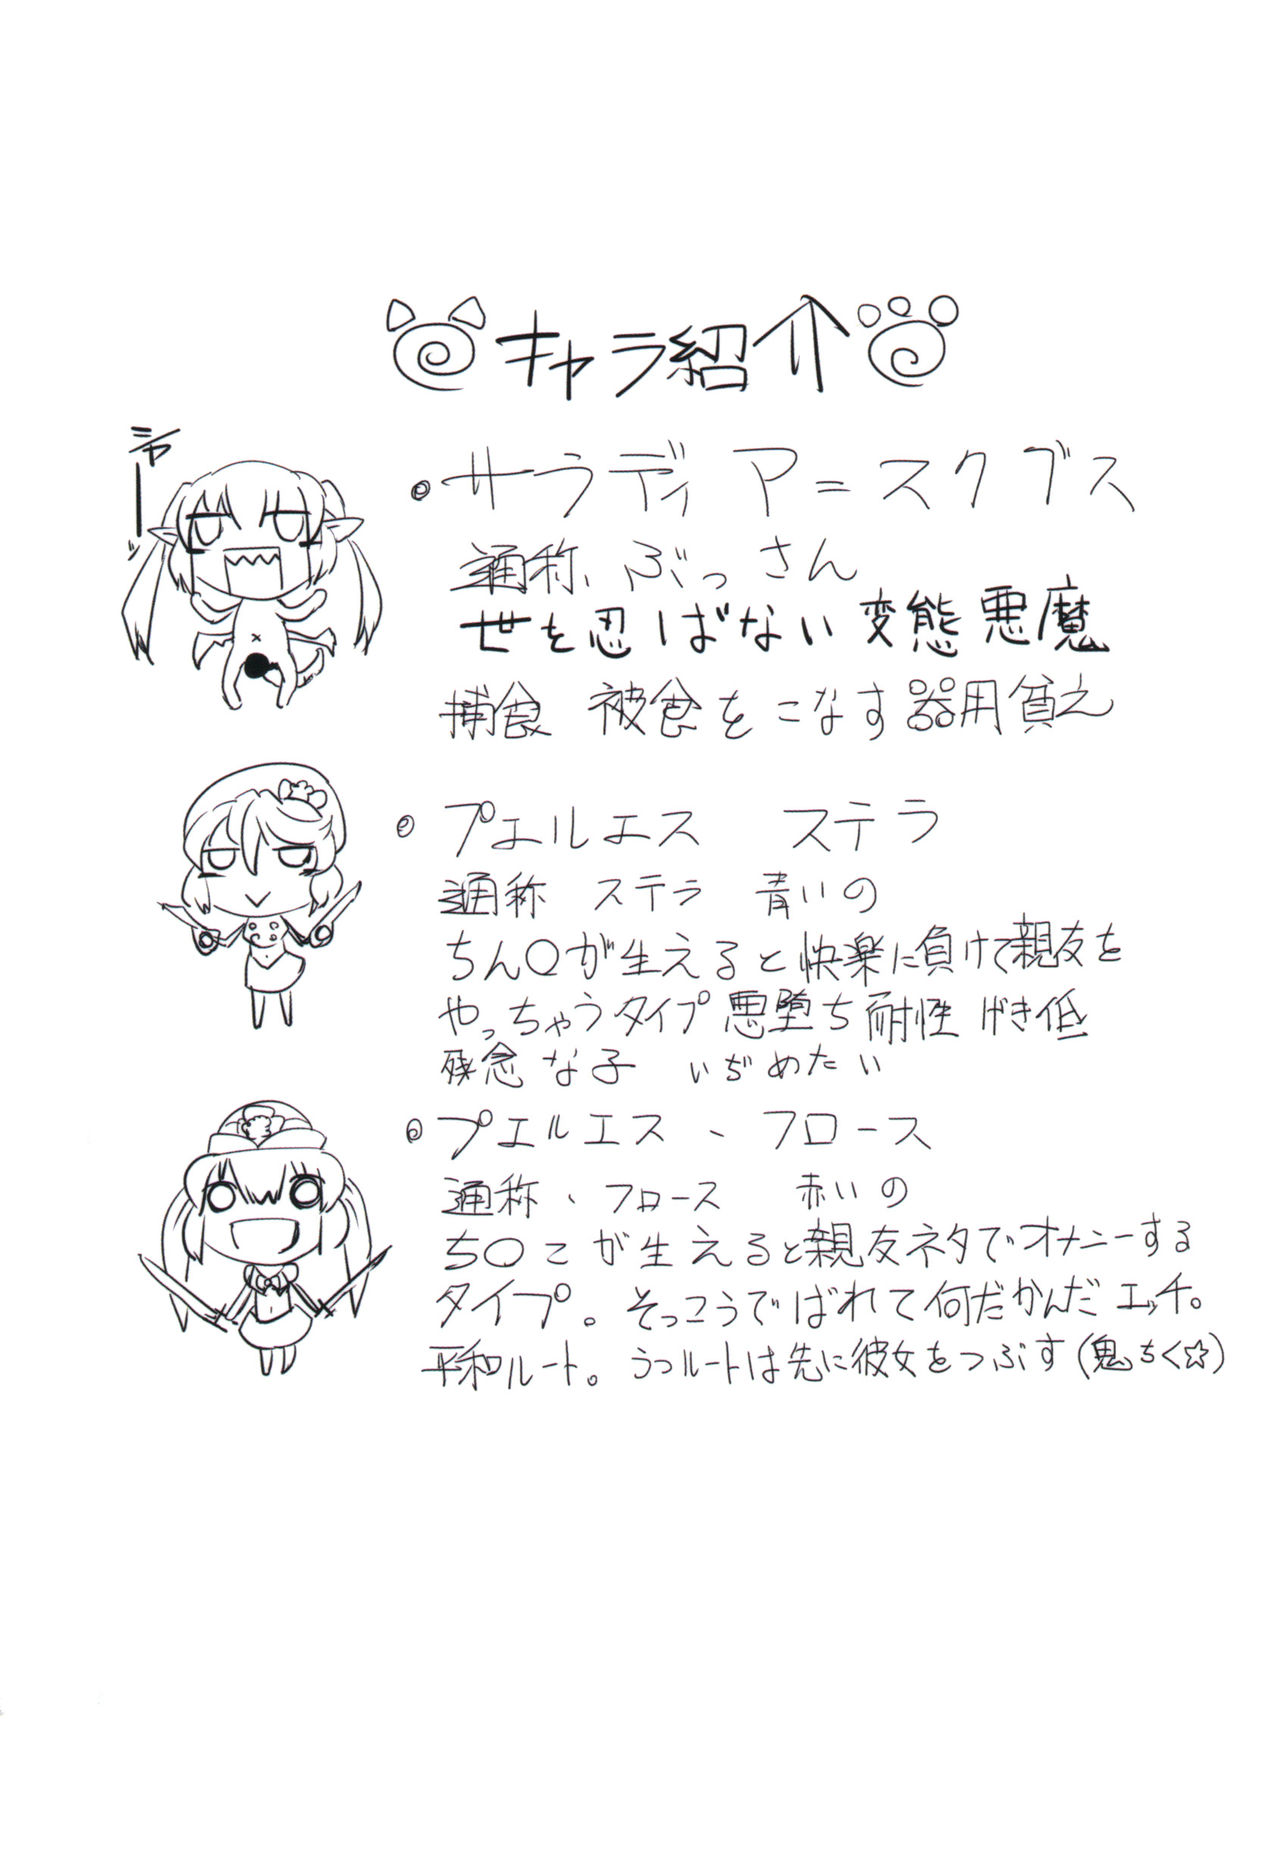 キャラ紹介
シャーッ
サラディア=スクブス
通称、ぶっさん
世を忍ばない変態悪魔
捕食 被食をこなす器用貧乏
プエルエス ステラ
通称 ステラ 青いの
ちん〇が生えると快楽に負けて親友を
やっちゃうタイプ 悪堕ち耐性 げき低
残念な子 いぢめたい
プエルエス、フロース
通称、フロース 赤いの
ち〇こが生えると親友ネタでオナニーする
タイプ。そっこうでばれて何だかんだエッチ。
平和ルート。うつルートは先に彼女をつぶす(鬼ちく☆)